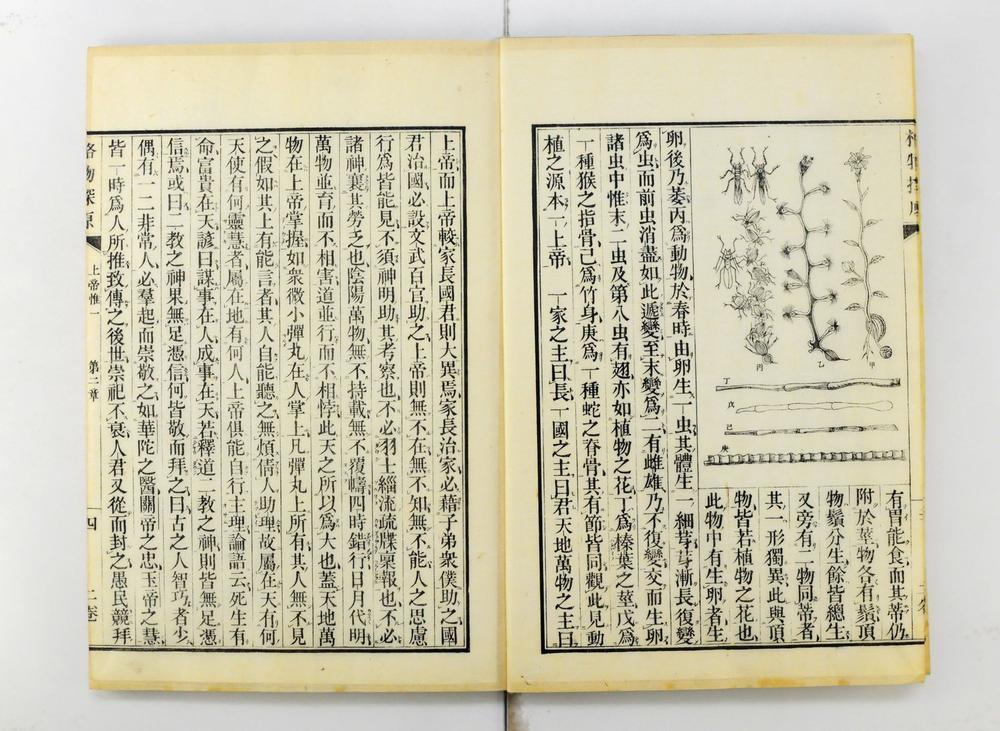 格物探原
有胃能食而其蒂仍
附於莖物各有鬚頂
物鬚分生餘皆總生
又旁有二物同蒂者
其一形獨異此與頂
物皆若植物之花也
此物中有生卵者生
甲
乙
丙
丁
戊
己
庚
卵後乃萎丙爲動物於春時由卵生一虫其體生一細芽芽漸長復變
爲虫而前虫消盡如此遞變至末變爲二有雌雄乃不復變交而生卵
諸虫中惟末一虫及第八虫有翅亦如植物之花丁爲榛葉之莖戊爲
一種猴之指骨己爲竹身庚爲一種蛇之脊骨其有節皆同觀此見動
植之源本一上帝 一家之主曰長一國之主曰君天地萬物之主曰
上帝而上帝較家長國君則大異焉家長治家必藉子弟衆僕助之國
君治國必設文武百官助之上帝則無不在無不知無不能人之思慮
行爲皆能見不須神明助其考察也不必羽士緇流疏牒稟報也不必
諸神襄其勞乏也陰陽萬物無不持載無不覆幬四時錯行日月代明
萬物並育而不相害道並行而不相悖此天之所以爲大也蓋天地萬
物在上帝掌握如衆微小彈丸在人掌上凡彈丸上所有其人無不見
之假如其上有能言者其人自能聽之無煩倩人助理故屬在天有何
天使有何靈慧者屬在地有何人上帝俱能自行主理論語云死生有
命富貴在天諺曰謀事在人成事在天若釋道二教之神則皆無足憑
信焉或曰二教之神果無足憑信何皆敬而拜之曰古之人智巧者少
偶有一二非常人必羣起而崇敬之如華陀之醫關帝之忠玉帝之慧
皆一時爲人所推致傳之後世崇祀不衰人君又從而封之愚民競拜
格物探原 上帝惟一 第二章 四 二卷